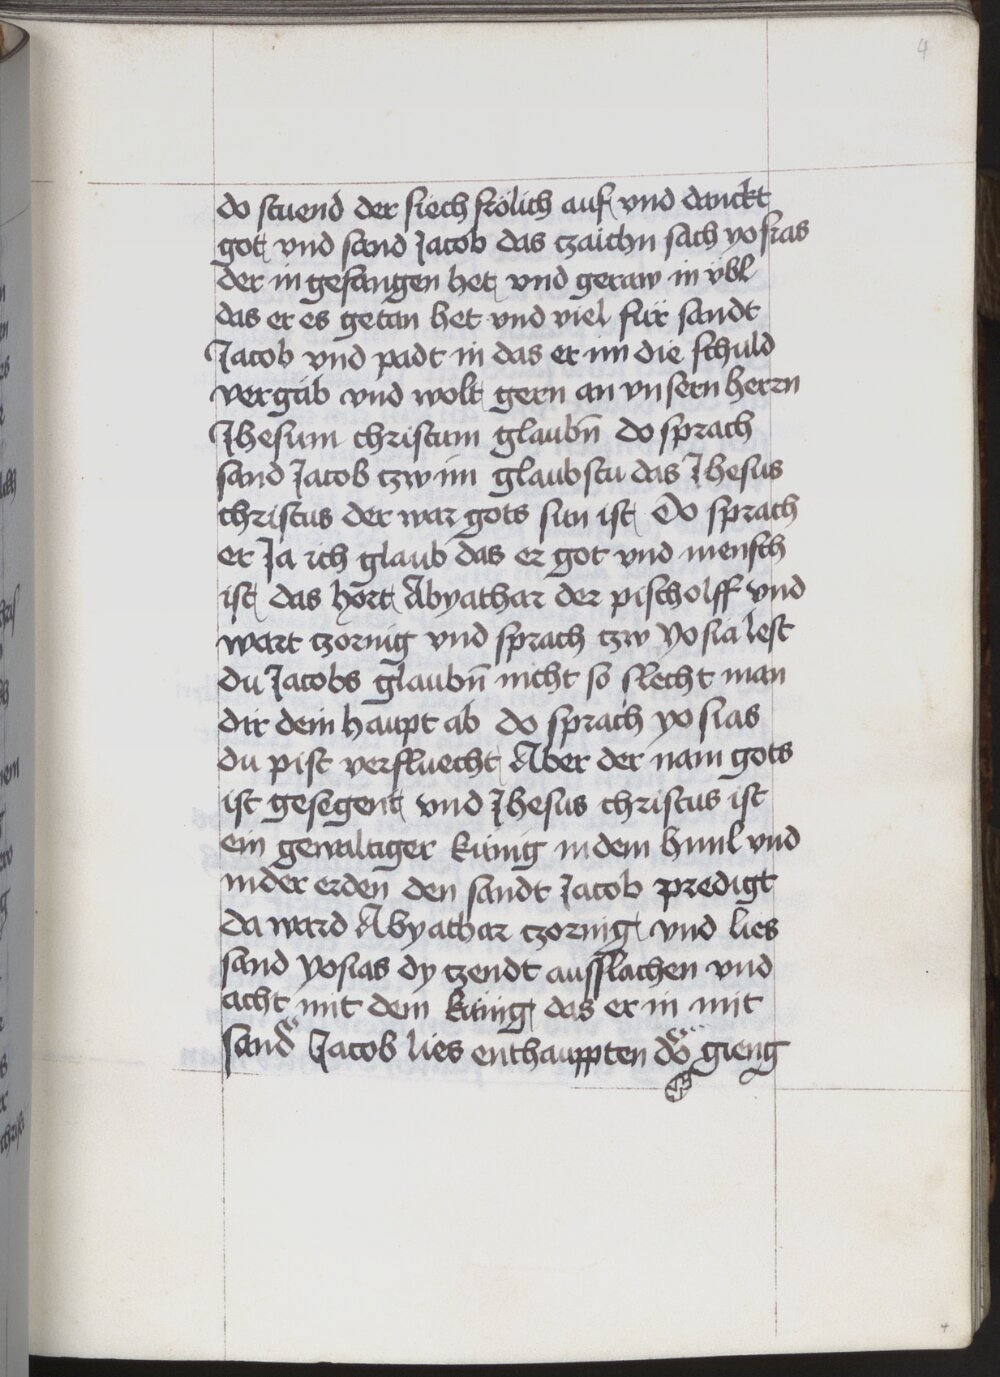 4
do stuend der siech frölich auf und danckt
got und sand Jacob das tzaichn sach yosias
der in gefangen het und geraw in übl
das er es getan het und viel für sandt
Jacob vnd padt in das er im die schuld
vergäb vnd wolt gern an vnsern herrn
Jhesum christum glaubn̄ do sprach
sand Jacob tzw im glaubstu das Jhesus
christus der war gots sun ist Do sprach
er Ja ich glaub das er got vnd mensch
ist das hört Abyathar der pischolff vnd
wart tzornig vnd sprach tzw Yosia lest
du Jacobs glaubn̄ nicht so slecht man
dir dein haupt ab do sprach yosias
du pist verfluecht Aber der nam gots
ist gesegent vnd Jhesus christus ist
ein gewaltiger künig in dem himl vnd
in der erden den sandt Jacob predigt
da ward Abyathar tzornig vnd lies
sand yosias dy tzendt ausslachen vnd
acht mit dem künig das er in mit
sand Jacob lies enthauppten do gieng